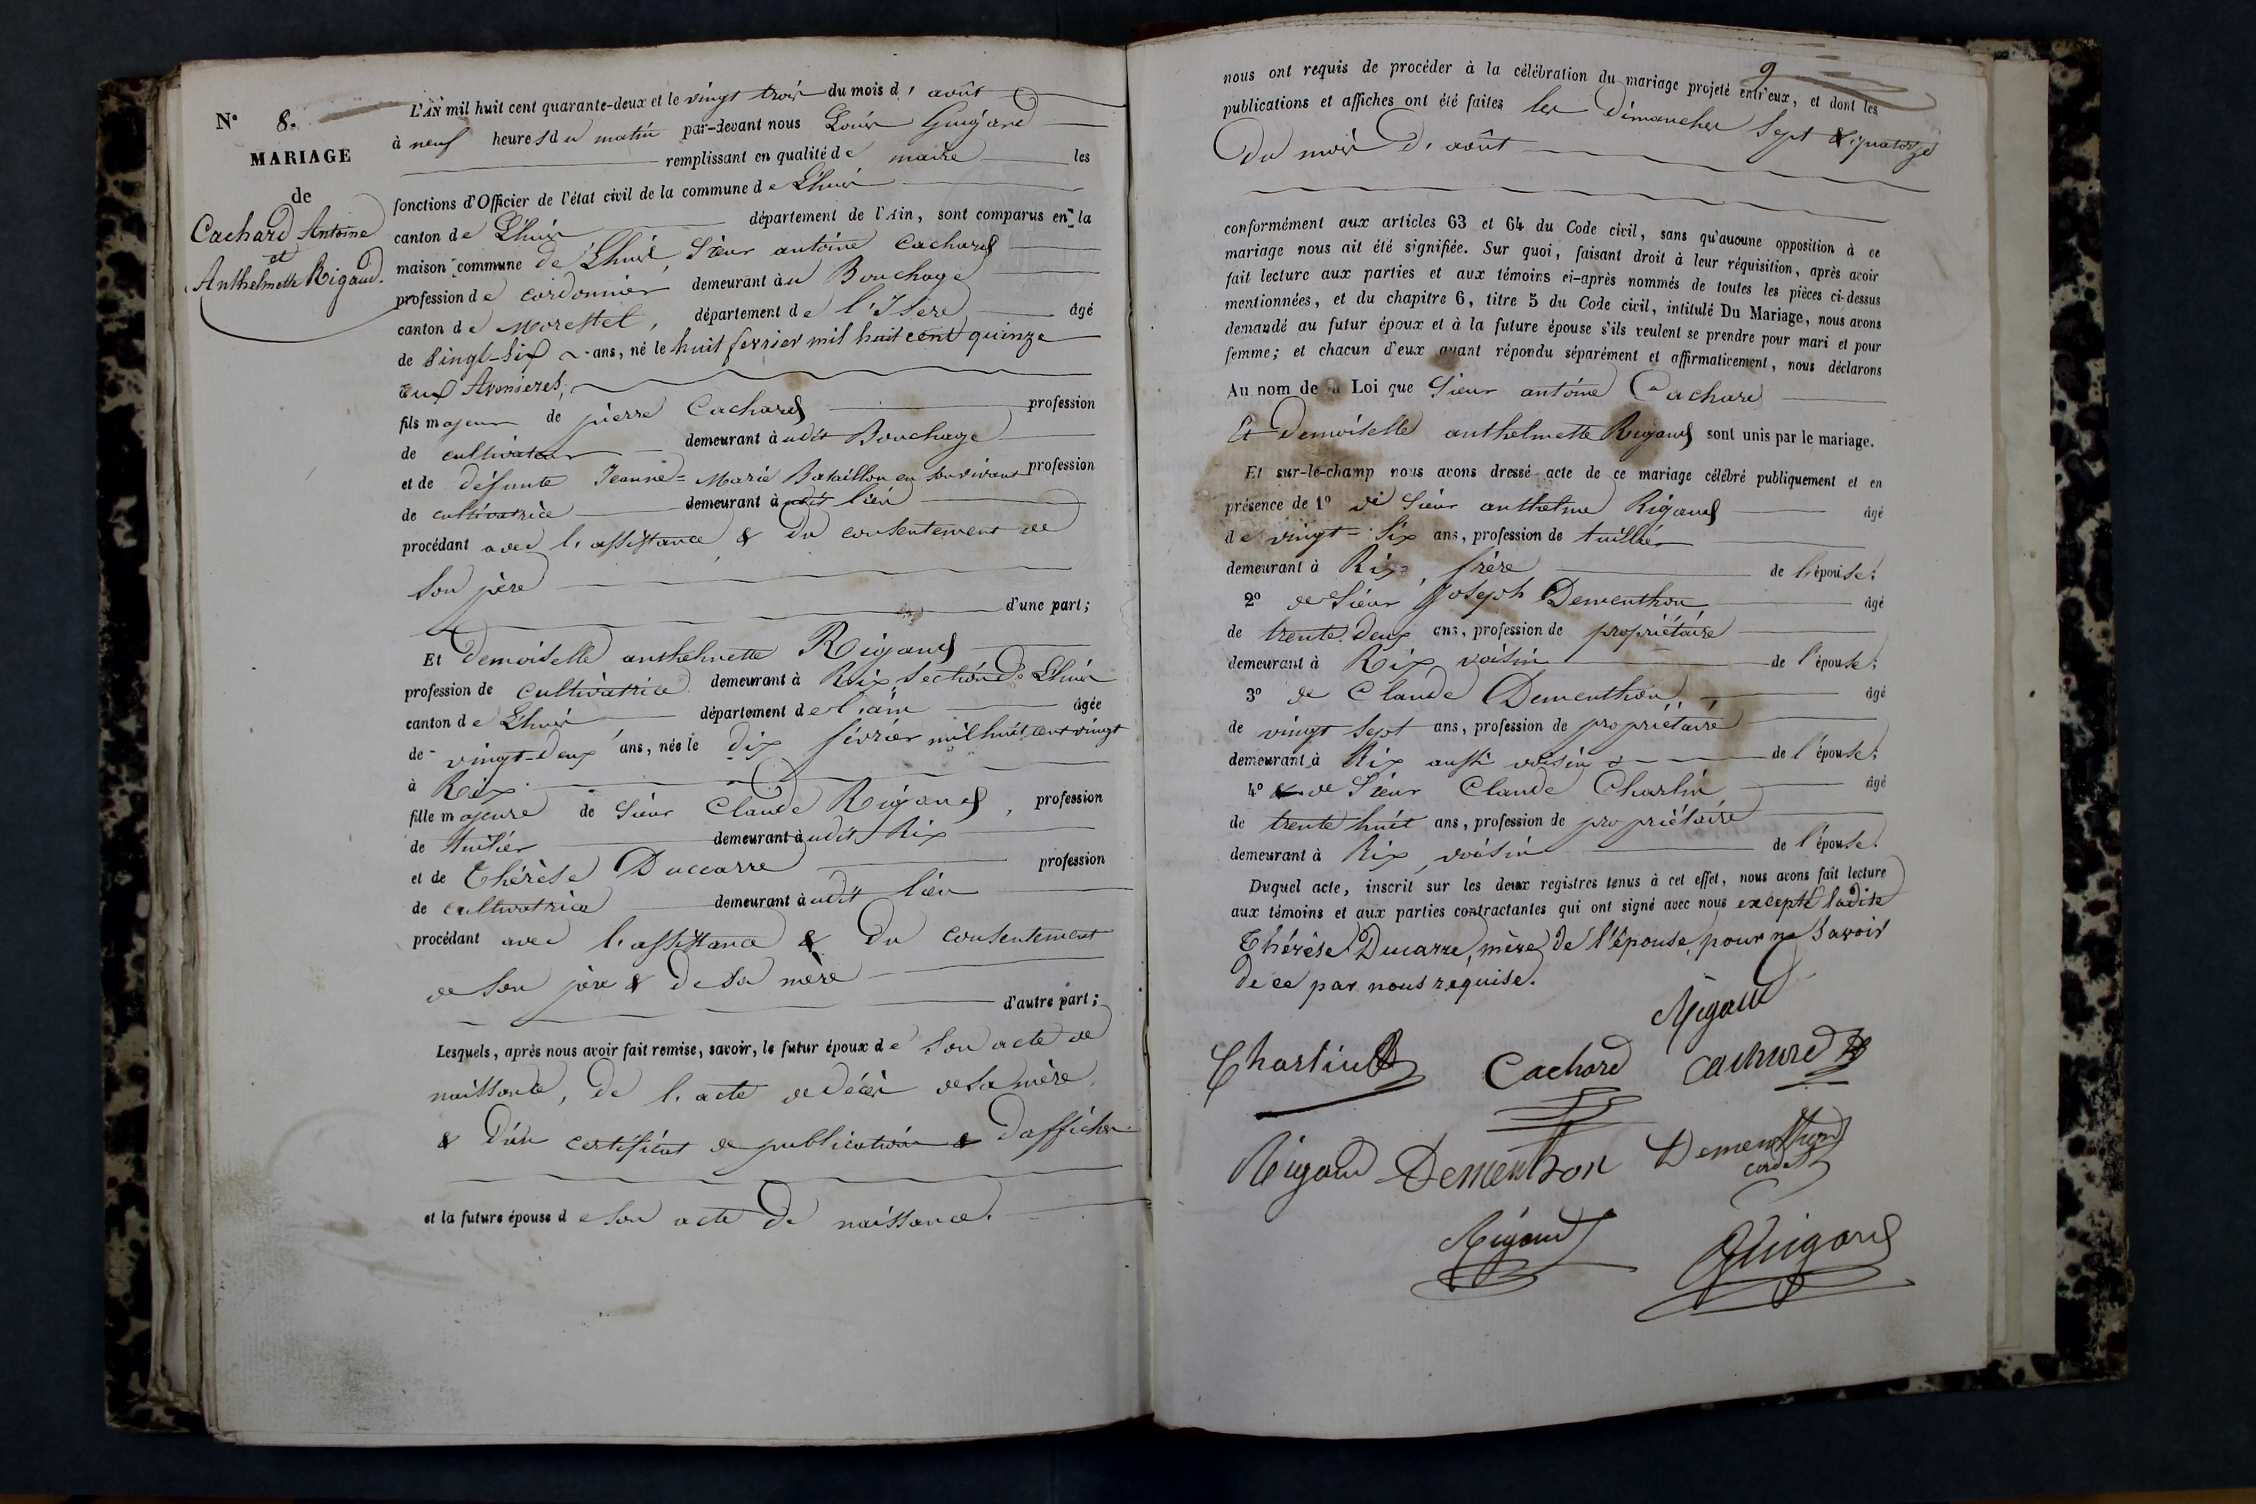 N° 8.
MARIAGE
de
Cachard Antoine
et
Anthelmette Rigaud.
L'AN mil huit cent quarante-deux et le vingt trois du mois d' août
à neuf heures du matin par-devant nous Louis Guigard
remplissant en qualité de maire les
fonctions d'Officier de l'état civil de la commune de Lhuis
canton de Lhuis département de l'Ain, sont comparus en la
maison commune de Lhuis, Sieur antoine Cachard
profession de cordonnier demeurant à u Bouchage
canton de Morestel, département de l'Isère âgé
de vingt-six ans, né le huit fevrier mil huit cent quinze
aux Avenieres,
fils majeur de pierre Cachard profession
de cultivateur demeurant à udit Bouchage
et de défunte Jeanne-Marie Bataillon en son vivant profession
de cultivatrice demeurant à udit lieu
procédant avec l'assistance & du consentement de
son père
d'une part;
Et demoiselle anthelmette Rigaud
profession de cultivatrice demeurant à Rix section de Lhuis
canton de Lhuis département de l'ain âgée
de vingt-deux ans, née le dix février mil huit cent vingt
à Rix
fille majeure de Sieur Claude Rigaud, profession
de tuilier demeurant à udit Rix
et de Thérèse Duccarre profession
de cultivatrice demeurant à udit lieu
procédant avec l'assistance & du consentement
de son père & de sa mère
d'autre part;
Lesquels, après nous avoir fait remise, savoir, le futur époux de son acte de
naissance, de l'acte de décès de sa mère,
& d'un certificat de publication & d'affiches.
et la future épouse de son acte de naissance.
9
nous ont requis de procéder à la célébration du mariage projeté entr'eux, et dont les
publications et affiches ont été faites les dimanches sept & quatorze
du mois d'août
conformément aux articles 63 et 64 du Code civil, sans qu'aucune opposition à ce
mariage nous ait été signifiée. Sur quoi, faisant droit à leur réquisition, après avoir
fait lecture aux parties et aux témoins ci-après nommés de toutes les pièces ci-dessus
mentionnées, et du chapitre 6, titre 5 du Code civil, intitulé Du Mariage, nous avons
demandé au futur époux et à la future épouse s'ils veulent se prendre pour mari et pour
femme; et chacun d'eux ayant répondu séparément et affirmativement, nous déclarons
Au nom de la Loi que Sieur antoine Cachard
Et demoiselle anthelmette Rigaud sont unis par le mariage.
Et sur-le-champ nous avons dressé acte de ce mariage célébré publiquement et en
présence de 1° de Sieur anthelme Rigaud âgé
de vingt-six ans, profession de tuillier
demeurant à Rix, frère de l'épouse;
2° de Sieur Joseph Dementhon âgé
de trente deux ans, profession de propriétaire
demeurant à Rix voisin de l'épouse;
3° de Claude Dementhon, âgé
de vingt sept ans, profession de propriétaire
demeurant à Rix aussi voisin de l'épouse;
4° & de Sieur Claude Charlin âgé
de trente huit ans, profession de propriétaire
demeurant à Rix, voisin de l'épouse.
Duquel acte, inscrit sur les deux registres tenus à cet effet, nous avons fait lecture
aux témoins et aux parties contractantes qui ont signé avec nous excepté ladite
Thérèse Ducarre, mère de l'épouse, pour ne savoir
de ce par nous requise.
Rigaud
Charlin Cachard Cachard
Rigaud Dementhon Dementhon
cadet
Rigaud Guigard